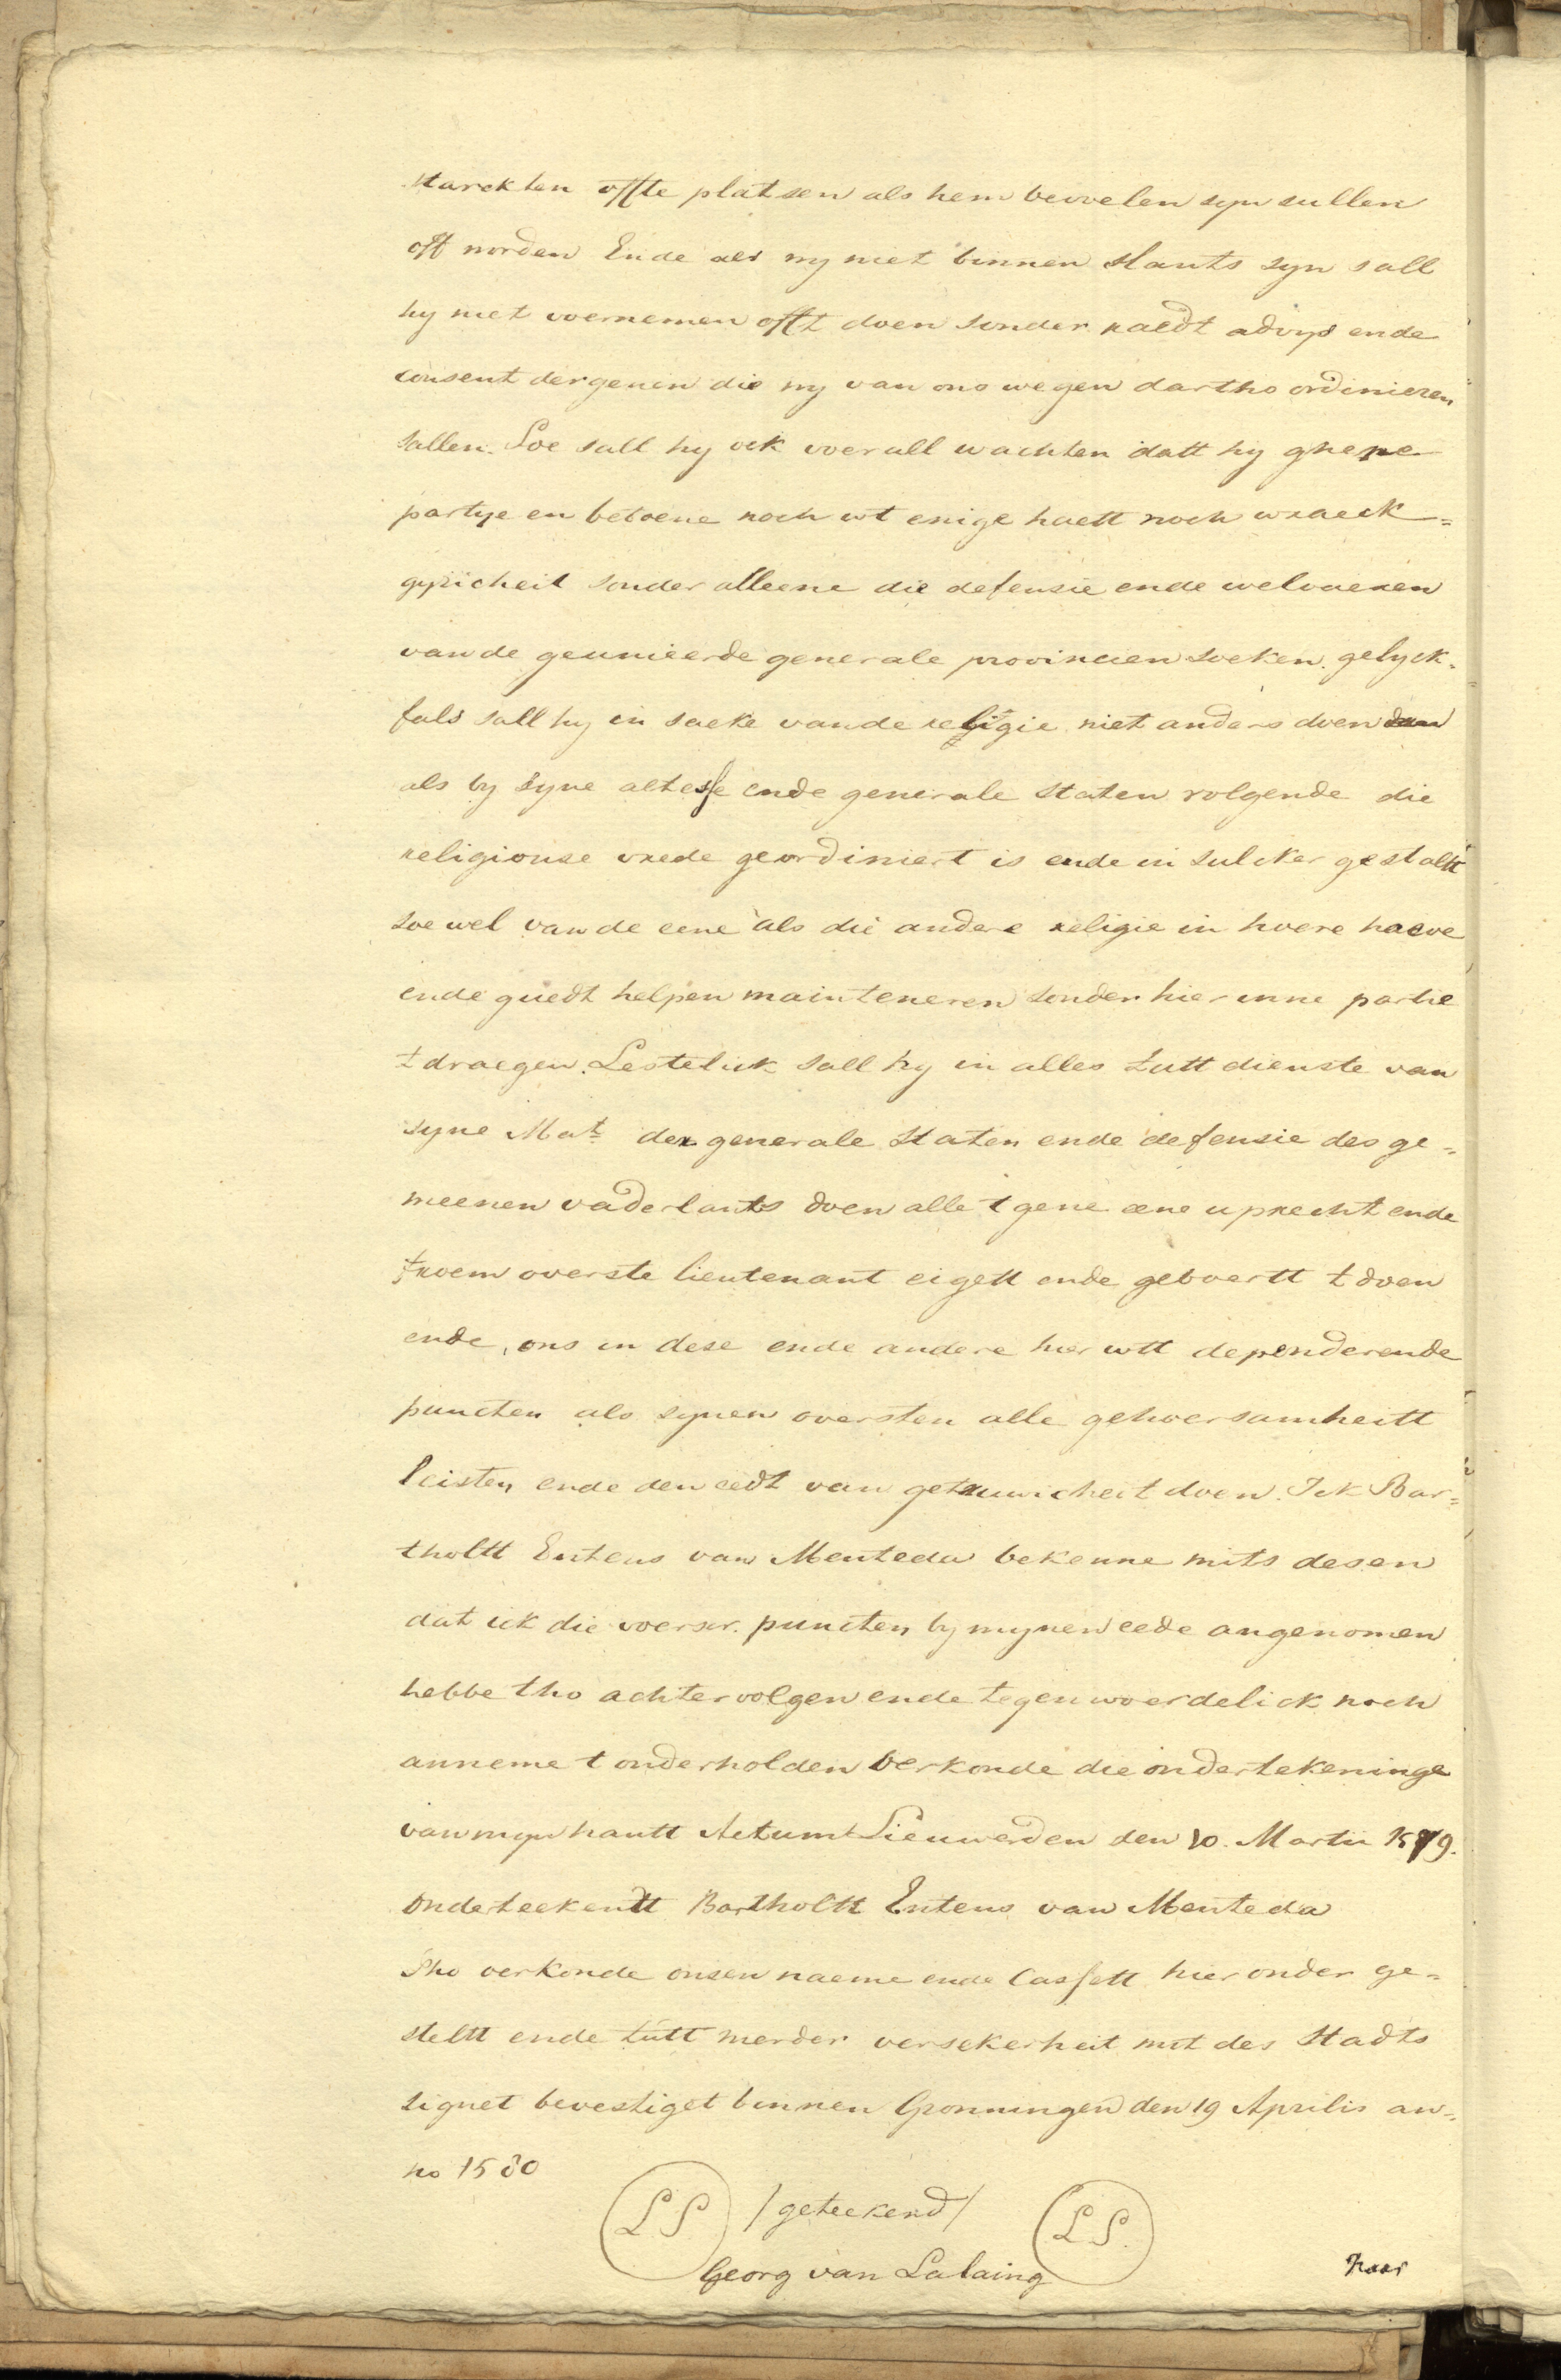 starckten offte platsen als hem bevolen syn sullen
oft worden Ende als wy niet binnen slants syn sall
hy niet voernemen offt doen sonder raedt advys ende
consent dergenen die wy van ons wegen dartho ordinieren
sallen. Soe sall hy ock voer all wachten datt hy ghene
partye en betoene noch wt enige haett noch wraeck=
gyricheit sonder alleene die defensie ende welvaeren
van de geunieerde generale provincien soeken. gelyck=
fals sall hy in saeke van de religie niet anders doen dan
als by syne altesse ende generale staten volgende die
religiouse vrede geordiniert is ende in sulcker gestaltt
soe wel van de eene als die andere religie in hoere haeve
ende guedt helpen mainteneren sonder hier inne partie
t draegen. Lestelick sall hy in alles tutt dienste van
syne Mat. der generale Staten ende defensie des ge=
meenen vaderlants doen alle t gene ene uprecht ende
froem overste lieutenant eigett ende geboertt t doen
ende, ons in dese ende andere hier wtt dependerende
puncten als synen oversten alle gehoersamheitt
leisten ende den eedt van getruwicheit doen. Ick Bar=
tholtt Entens van Menteda bekenne mits desen
dat ick die voerscr. puncten by mynen eede angenomen
hebbe tho achtervolgen ende tegenwoerdelick noch
anneme t onderholden verkonde die ondertekeninge
van myn hantt Actum Lieuwerden den 10. Martii 1579.
Onderteekendt Bartholtt Entens van Menteda
Tho verkonde onsen naeme ende Cassett hier onder ge=
steltt ende tutt merder versekerheit mit des Stadts
signet bevestiget binnen Gronningen den 19 Aprilis an=
no 1580
LS /geteekend/ LS.
Georg van Lalaing
Haar